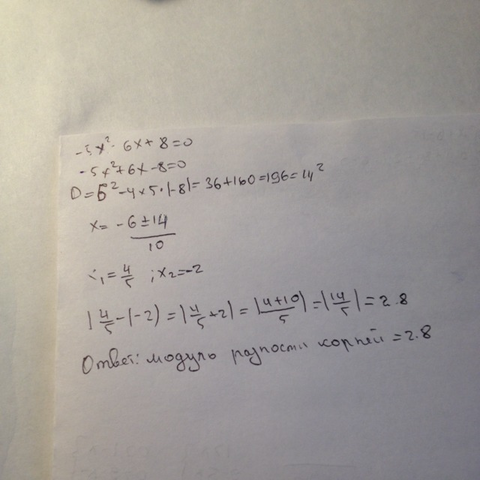 -5x² - 6x + 8 = 0
-5x² + 6x - 8 = 0
D = 6² - 4 × 5 · |-8| = 36 + 160 = 196 = 14²
x = -6 ± 14 / 10
x₁ = 4/5 ; x₂ = -2
|4/5 - |-2) = |4/5 + 2| = |4+10/5| = |14/5| = 2.8
Ответ: модуль разности корней = 2.8